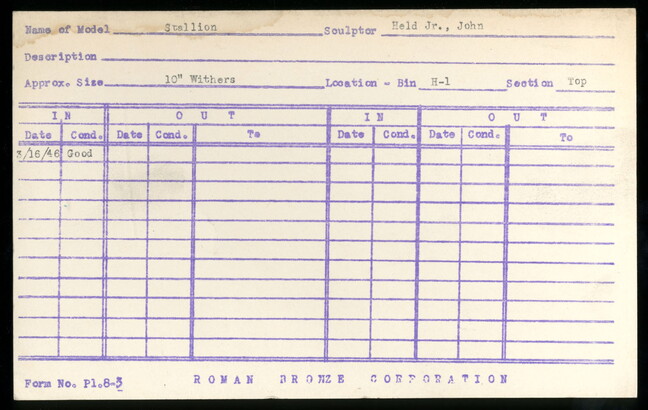 Name of Model Stallion Sculptor Held Jr., John
Description
Approx. Size 10" Withers Location - Bin H-1 Section Top
IN OUT IN OUT
Date Cond. Date Cond. To Date Cond. Date Cond. To
3/16/46 Good
Form No. Pl.8-3 ROMAN BRONZE CORPORATION